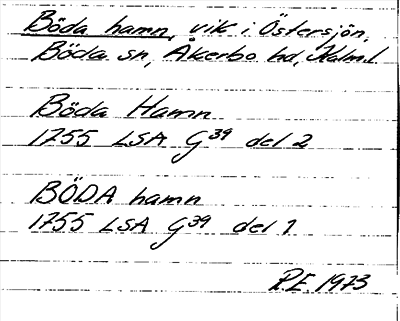 Böda hamn, vik i Östersjön,
Böda sn, Åkerbo hd, Kalm.l
Böda Hamn
1755 LSA G39 del 2
BÖDA hamn
1755 LSA G39 del 1
R.E 1973